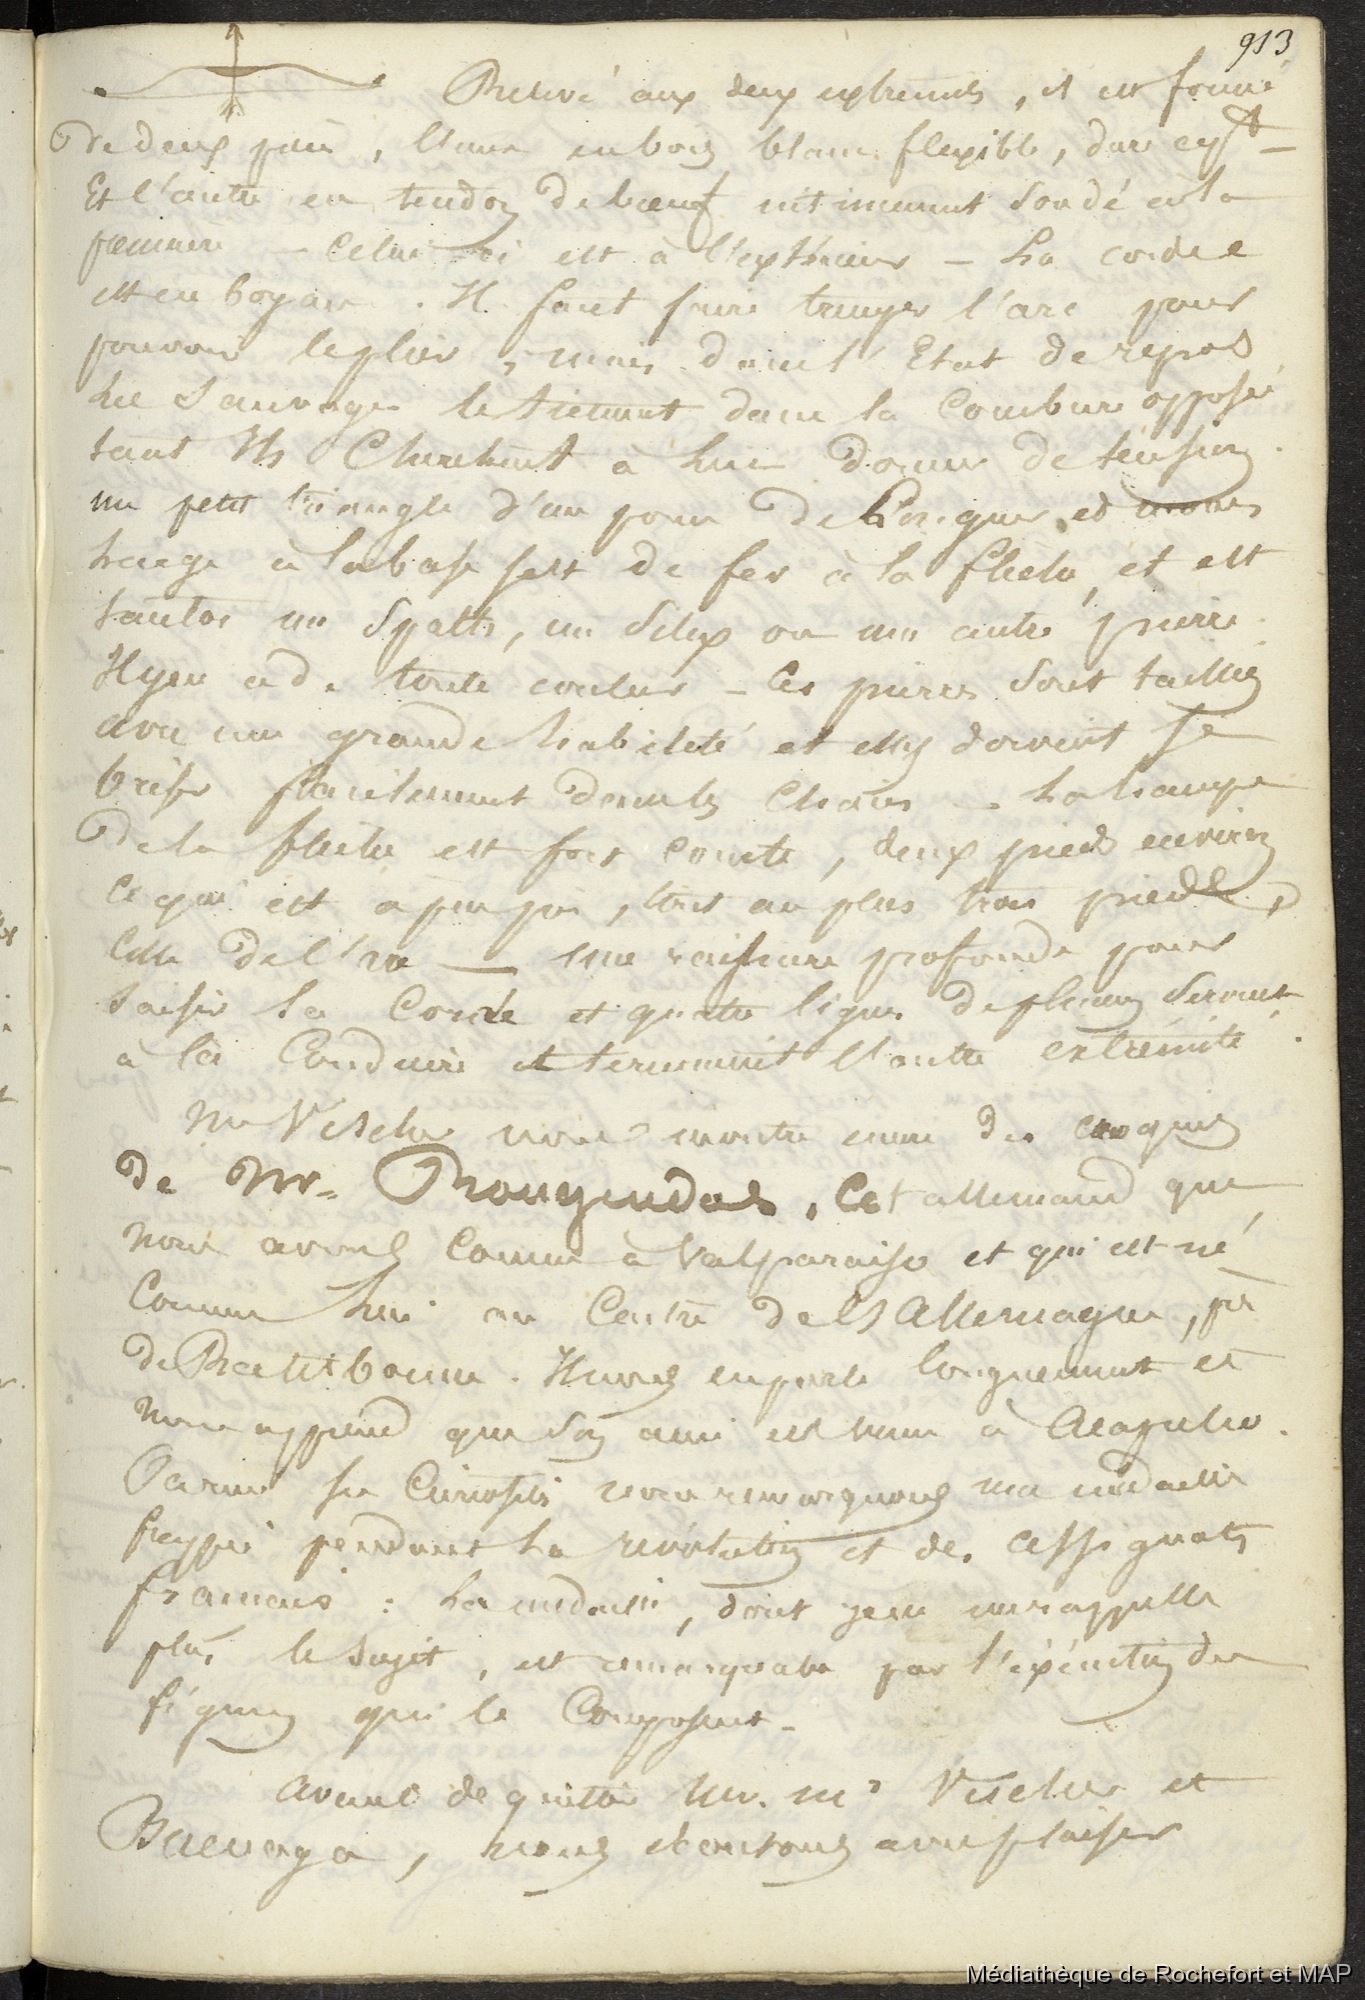 913
Relevé aux deux extremités, il est formé
de deux pièces, l'une en bois blanc flexible,
Et l'autre en tendon de bœuf intimement soudé à la
première — Celui ci est à l'extérieur — La corde
est en boyau. Il faut faire tremper l'arc pour
pouvoir le plier, mais dans l'Etat de repos
les Sauvages le tiennent dans la Courbure opposée
tant Ils Cherchent à lui donner de tension.
un petit triangle d'un pouce de longueur et moins
large à la base sert de fer à la flèche, et est
tantôt un Spath, un Silex ou une autre pierre.
Il y en a de toute couleur — Ces pierres sont taillées
avec une grande habileté et elles doivent se
briser facilement dans les Chairs — La hampe
de la flèche est fort courte, deux pieds environ
Ce qui est à peu près, tout au plus trois pieds,
Celle de l'arc — une rainure profonde pour
saisir la Corde et quatre lignes de plumes servant
à la Conduire et terminent l'autre extrémité.
Mr Vischer nous montre une des croquis
de Mr. Rougendas, Cet allemand que
nous avons Connu à Valparaiso et qui est né
Comme lui au Centre de l'Allemagne, près
de Ratisbonne. Il nous en parle longuement et
nous apprend que son ami est venu à Acapulco.
Parmi ses Curiosités nous remarquons une médaille
frappée pendant la révolution et des assignats
français : La médaille, dont je ne me rappelle
plus le sujet, est remarquable par l'éxécution des
figures qui la Composent —
avant de quitter Mr. Mrs Vischer et
nous écoutons avec plaisir
Médiathèque de Rochefort et MAP